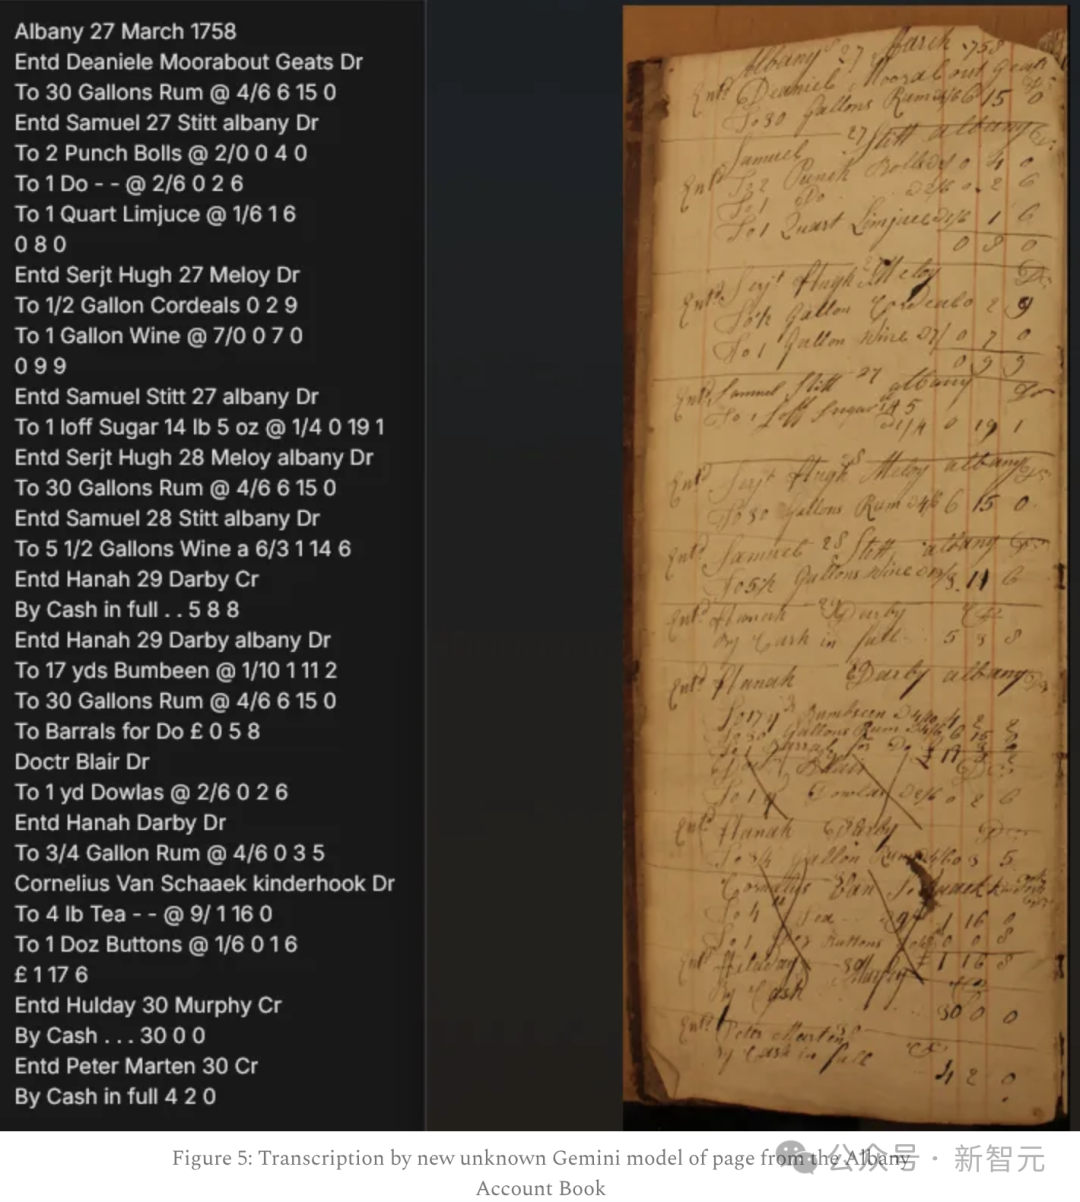 Albany 27 March 1758
Entd Deaniele Moorabout Geats Dr
To 30 Gallons Rum @ 4/6 6 15 0
Entd Samuel 27 Stitt albany Dr
To 2 Punch Bolls @ 2/0 0 4 0
To 1 Do - - @ 2/6 0 2 6
To 1 Quart Limjuce @ 1/6 1 6
0 8 0
Entd Serjt Hugh 27 Meloy Dr
To 1/2 Gallon Cordeals 0 2 9
To 1 Gallon Wine @ 7/0 0 7 0
0 9 9
Entd Samuel Stitt 27 albany Dr
To 1 loff Sugar 14 lb 5 oz @ 1/4 0 19 1
Entd Serjt Hugh 28 Meloy albany Dr
To 30 Gallons Rum @ 4/6 6 15 0
Entd Samuel 28 Stitt albany Dr
To 5 1/2 Gallons Wine a 6/3 1 14 6
Entd Hanah 29 Darby Cr
By Cash in full . . 5 8 8
Entd Hanah 29 Darby albany Dr
To 17 yds Bumbeen @ 1/10 1 11 2
To 30 Gallons Rum @ 4/6 6 15 0
To Barrals for Do £ 0 5 8
Doctr Blair Dr
To 1 yd Dowlas @ 2/6 0 2 6
Entd Hanah Darby Dr
To 3/4 Gallon Rum @ 4/6 0 3 5
Cornelius Van Schaaek kinderhook Dr
To 4 lb Tea - - @ 9/ 1 16 0
To 1 Doz Buttons @ 1/6 0 1 6
£ 1 17 6
Entd Hulday 30 Murphy Cr
By Cash . . . 30 0 0
Entd Peter Marten 30 Cr
By Cash in full 4 2 0
Albany 27 March 1758
Entd Deaniel Moorabout Geats
To 30 Gallons Rum @ 4/6 6 15 0
Samuel 27 Stitt albany Dr
Entd To 2 Punch Bolls 0 4 0
To 1 Do @ 2/6 0 2 6
To 1 Quart Limjuce @ 1/6 1 6
0 8 0
Entd Serjt Hugh Meloy Dr
To 1/2 Gallon Cordeals 2 9
To 1 Gallon Wine @ 7/ 0 7 0
0 9 9
Entd Samuel Stitt 27 albany Dr
To 1 Loff Sugar
@ 1/4 0 19 1
Entd Serjt Hugh 28 Meloy albany Dr
To 30 Gallons Rum @ 4/6 6 15 0
Entd Samuel 28 Stitt albany Dr
To 5 1/2 Gallons Wine 6
Entd Hanah 29 Darby Cr
By Cash in full 5 8 8
Entd Hanah Darby albany Dr
To 17 yds Bumbeen
To 30 Gallons Rum 6 15
for Do
Blair
To 1 yd Dowlas @ 2/6 0 2 6
Entd Hanah Darby Dr
To 3/4 Gallon Rum @ 4/6 0 3 5
Cornelius Van
To 4 Tea @ 9/ 1 16 0
To 1 Doz Buttons 0 0 8
£ 1 16 8
Entd Hulday 30 Murphy
By Cash
30 0 0
Entd Peter Marten 30
By Cash in full Cr
4 2 0
Figure 5: Transcription by new unknown Gemini model of page from the Albany
Account Book
公众号 · 新智元